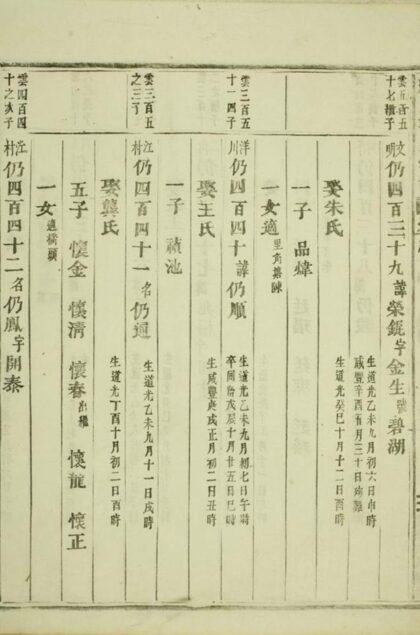 雲五百五十七繼子
文明仍四百三十九諱榮錕字金生號碧湖
生道光乙未九月初六日申時
咸豐辛酉年月三十日殉難
娶朱氏
生道光癸巳十月十二日酉時
一子 品煒
一女適里角蔡陳
雲三百五十一四子
洋川仍四百四十諱仍順
生道光乙未九月初七日午時
卒同治戊辰十月廿五日巳時
娶王氏
生咸豐庚戌正月初二日丑時
一子 禎池
雲三百五之三子
江村仍四百四十一名仍迥
生道光乙未九月十一日戌時
娶龔氏
生道光丁酉十月初二日酉時
五子 懷金 懷清 懷春出繼 懷龍 懷正
一女適橋頭
雲四百四十之次子
江村仍四百四十二名仍鳳字開泰